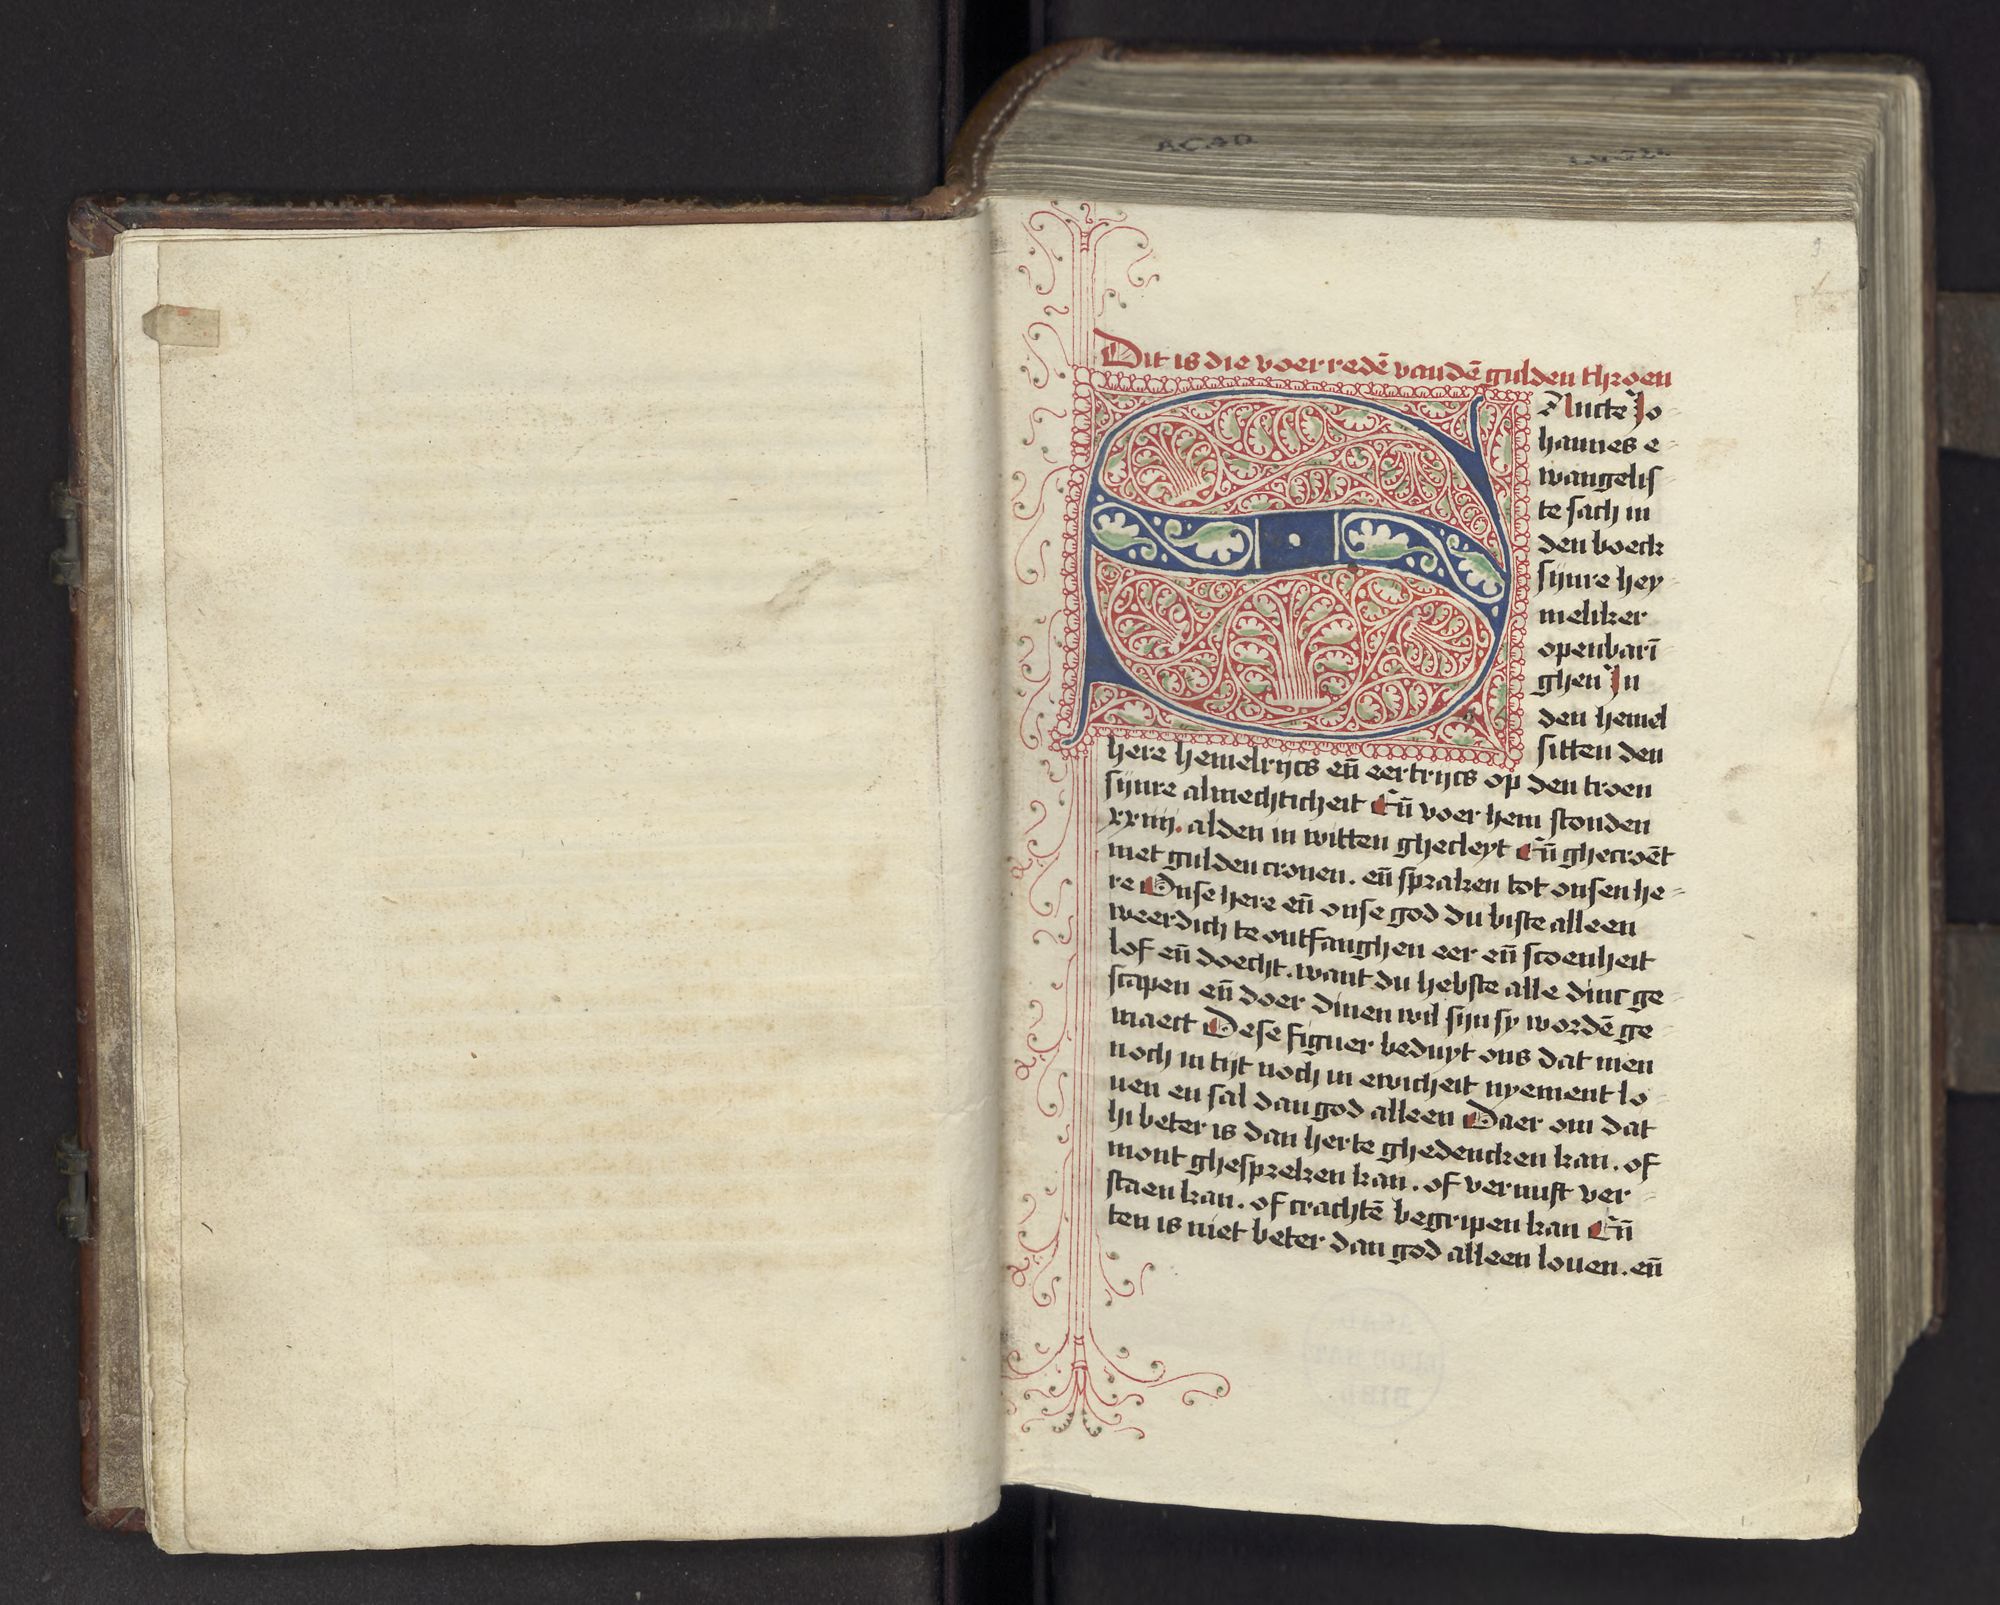 ACAD
Dit is die voer redē vandē gulden throen
S Ancte Jo-
hannes e-
wangelis
te sach in
den boeck
sijnre hey-
meliker
openbarī
ghen In
den hemel
sitten den
here hemelrijcs eñ eertrijcs op den troen
sijnre almechticheit Eñ voer hem stonden
xxiiij. alden in witten ghecleyt Eñ ghecroēt
met gulden cronen. eñ spraken tot onsen he-
re Onse here eñ onse god du biste alleen
weerdich te ontfanghen eer eñ scoenheit
lof eñ doecht. want du hebste alle dinc ge-
scapen eñ doer dinen wil sijn sy wordē ge-
maect Dese figuer beduyt ons dat men
noch in tijt noch in ewicheit nyement lo-
uen en sal dan god alleen Daer om dat
hi beter is dan herte ghedencken kan. of
mont ghespreken kan. of vernuft ver-
staen kan. of crachtē begripen kan Eñ
ten is niet beter dan god alleen louen. eñ